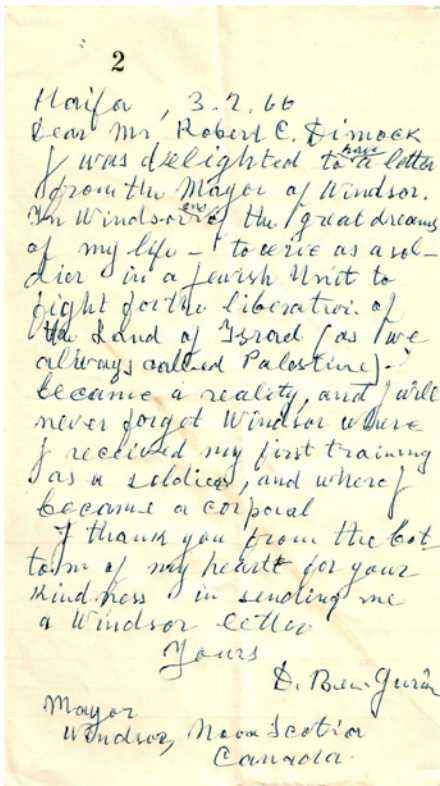 2
Haifa, 3.7.66
Dear Mr. Robert C. Dimock
I was delighted to have a letter
from the Mayor of Windsor.
In Windsor one of the great dreams
of my life – to serve as a sol-
dier in a Jewish Unit to
fight for the liberation of
the Land of Israel (as we
always called Palestine) –
became a reality, and I will
never forget Windsor where
I received my first training
as a soldier, and where I
became a corporal
I thank you from the bot-
tom of my heart for your
kindness in sending me
a Windsor letter
Yours
D. Ben-Gurion
Mayor
Windsor, Nova Scotia
Canada.